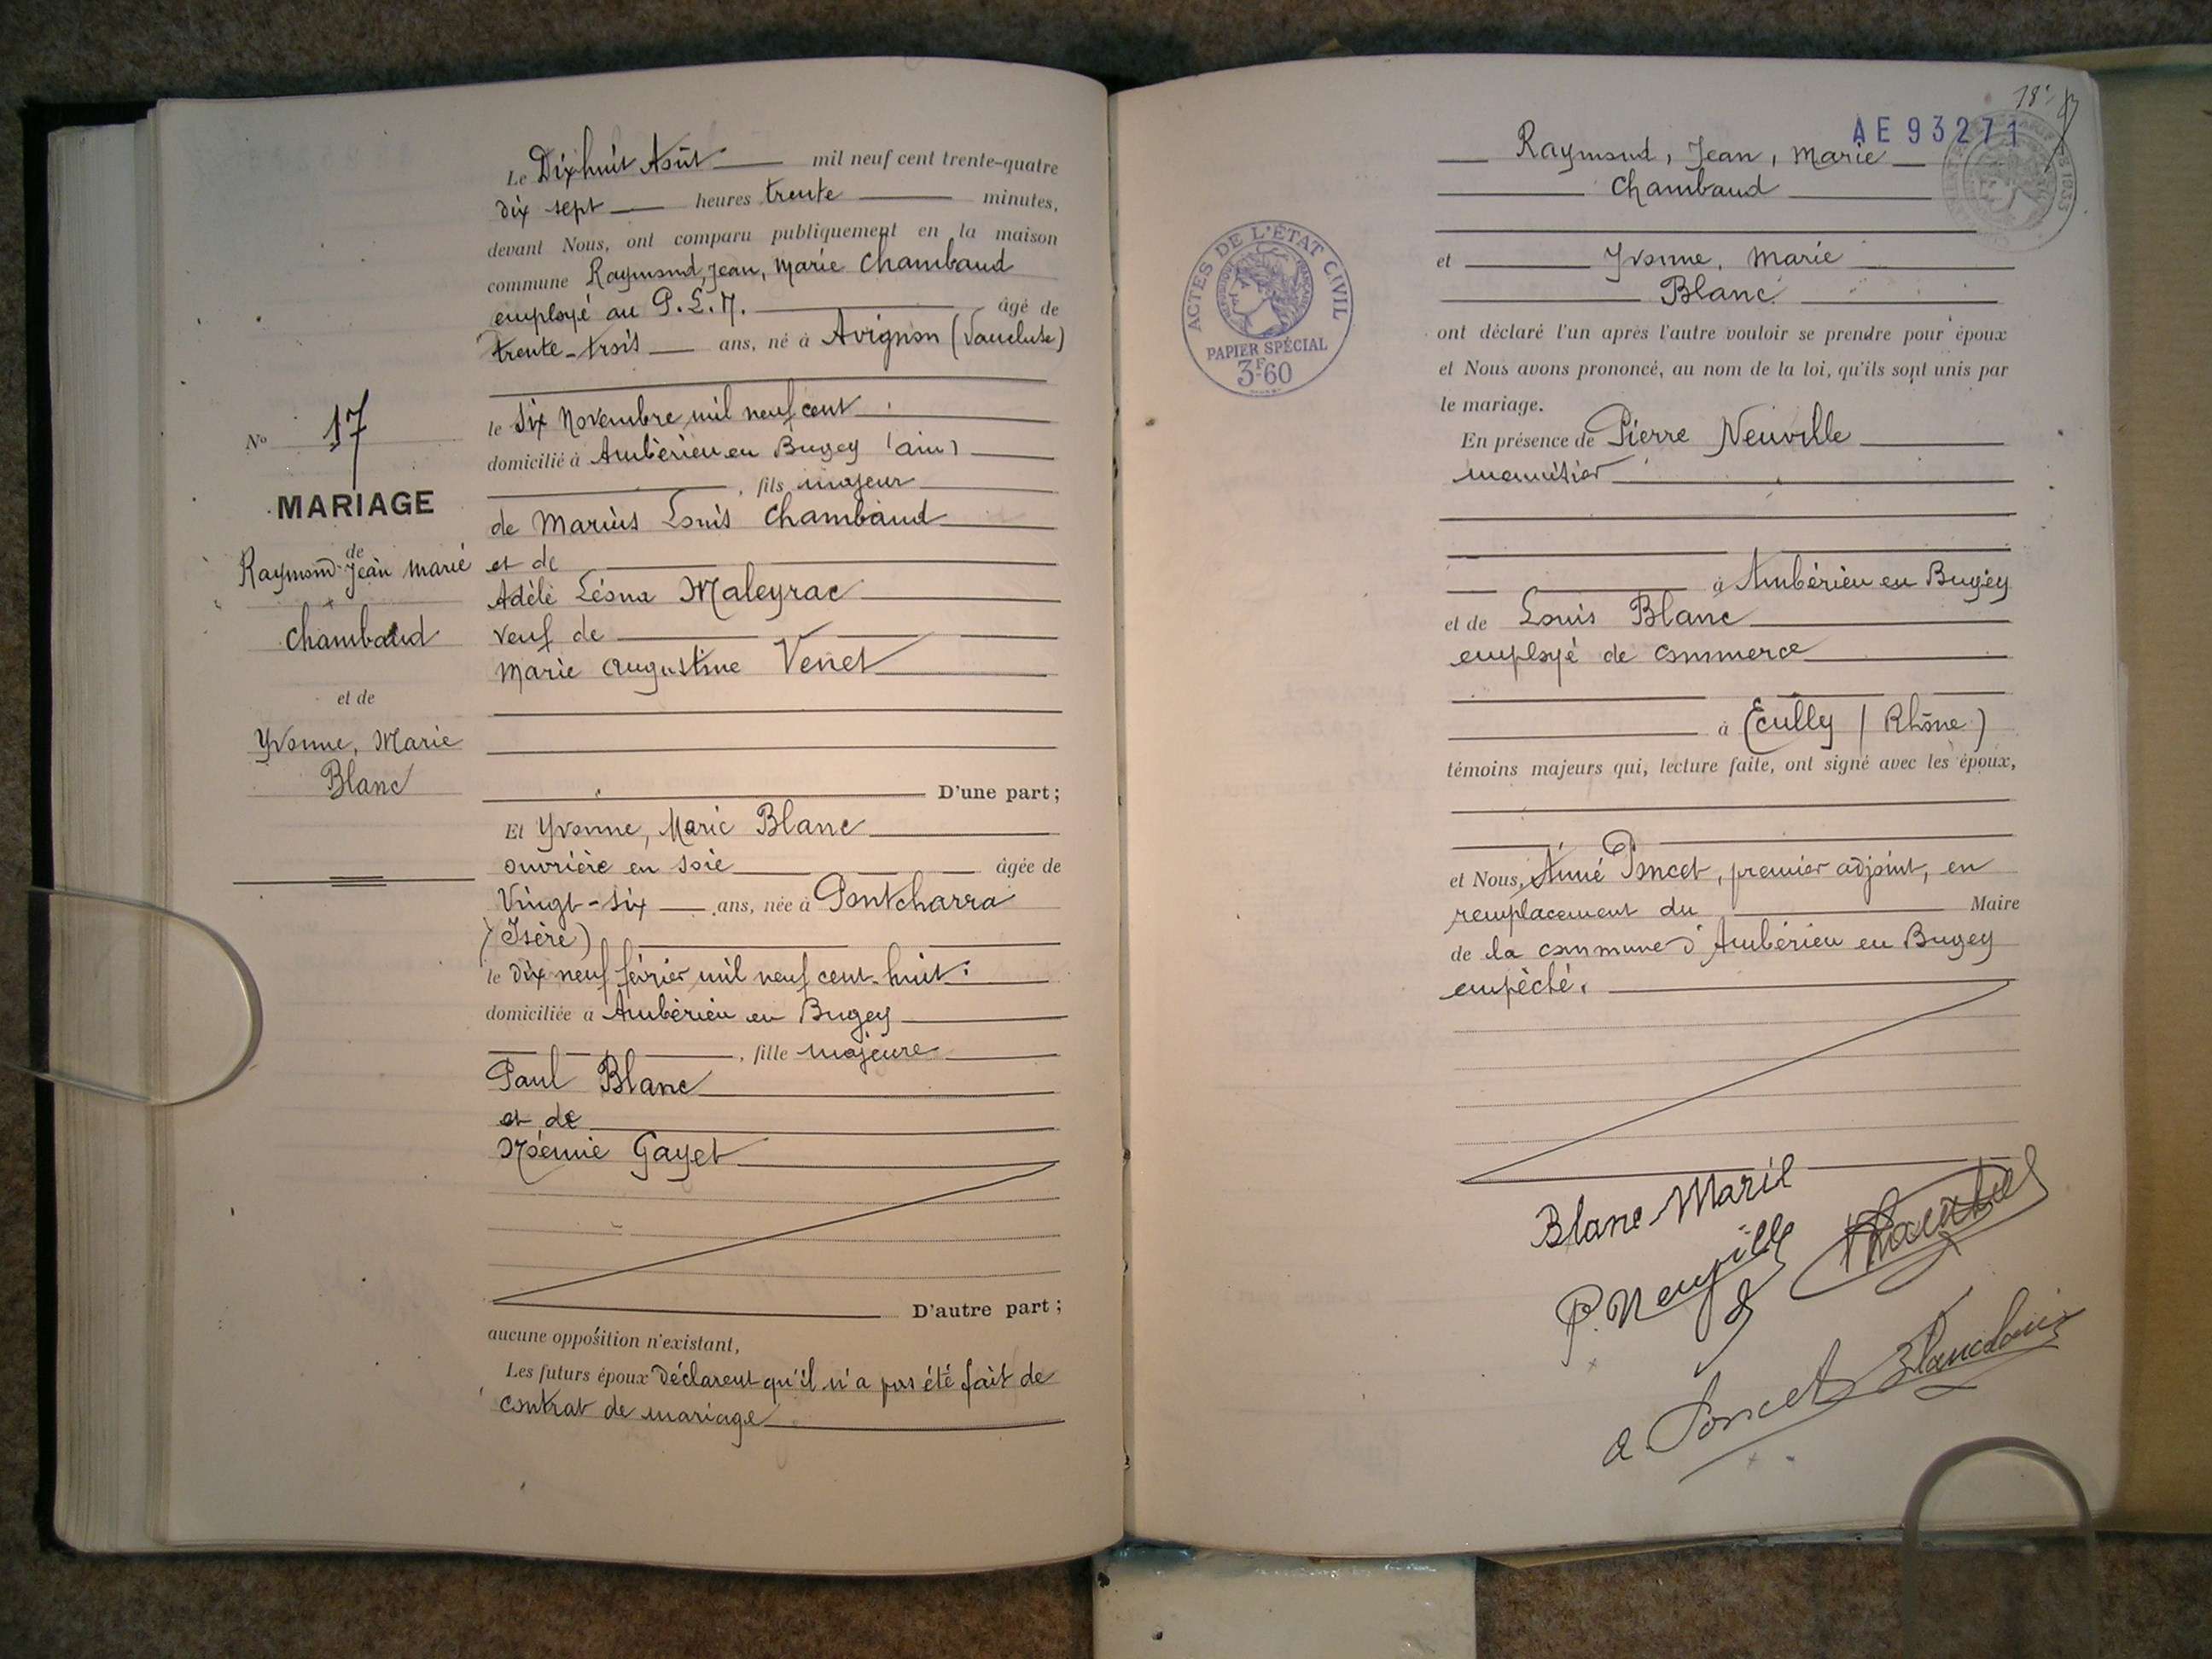 Le Dix huit Août mil neuf cent trente-quatre
dix sept heures trente minutes,
devant Nous, ont comparu publiquement en la maison
commune Raymond, Jean, Marie Chambaud
employé au P.L.M. âgé de
trente-trois ans, né à Avignon (Vaucluse)
le Six Novembre mil neuf cent
domicilié à Ambérieu en Bugey (ain)
, fils majeur
de Marius Louis Chambaud
et de
Adèle Léona Maleyrac
veuf de
Marie Augustine Venet
D'une part;
Et Yvonne, Marie Blanc
ouvrière en soie âgée de
Vingt-six ans, née à Pontcharra
(Isère)
le dix neuf février mil neuf cent-huit.
domiciliée à Ambérieu en Bugey
, fille majeure
Paul Blanc
et de
Noémie Gayet
D'autre part;
aucune opposition n'existant,
Les futurs époux déclarent qu'il n'a pas été fait de
contrat de mariage
No 17
MARIAGE
de
Raymond Jean Marie
Chambaud
et de
Yvonne, Marie
Blanc
AE 93271
Raymond, Jean, Marie
Chambaud
et Yvonne, Marie
Blanc
ont déclaré l'un après l'autre vouloir se prendre pour époux
et Nous avons prononcé, au nom de la loi, qu'ils sont unis par
le mariage.
En présence de Pierre Neuville
menuisier
à Ambérieu en Bugey
et de Louis Blanc
employé de commerce
à Ecully (Rhône)
témoins majeurs qui, lecture faite, ont signé avec les époux,
et Nous, Aimé Poncet, premier adjoint, en
remplacement du Maire
de la commune d'Ambérieu en Bugey
empêché.
Blanc Marie
P. Neuville
a Poncet Blanc Louis
ACTES DE L'ÉTAT CIVIL
RÉPUBLIQUE FRANÇAISE
PAPIER SPÉCIAL
3F60